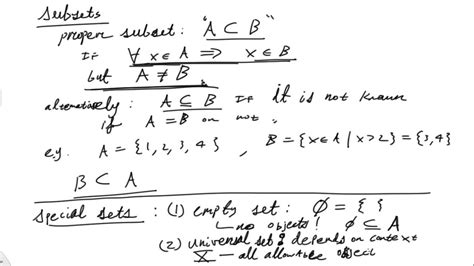 Subsets
proper subset: "A ⊂ B"
If ∀ x ∈ A ⟹ x ∈ B
but A ≠ B.
alternatively: A ⊆ B If it is not known
if A = B or not.
e.g. A = {1, 2, 3, 4}, B = {x ∈ A | x > 2} = {3, 4}
B ⊂ A
Special Sets: (1) empty set: ∅ = { }
no objects! ∅ ⊆ A
(2) universal set: depends on context
X — all allowable object